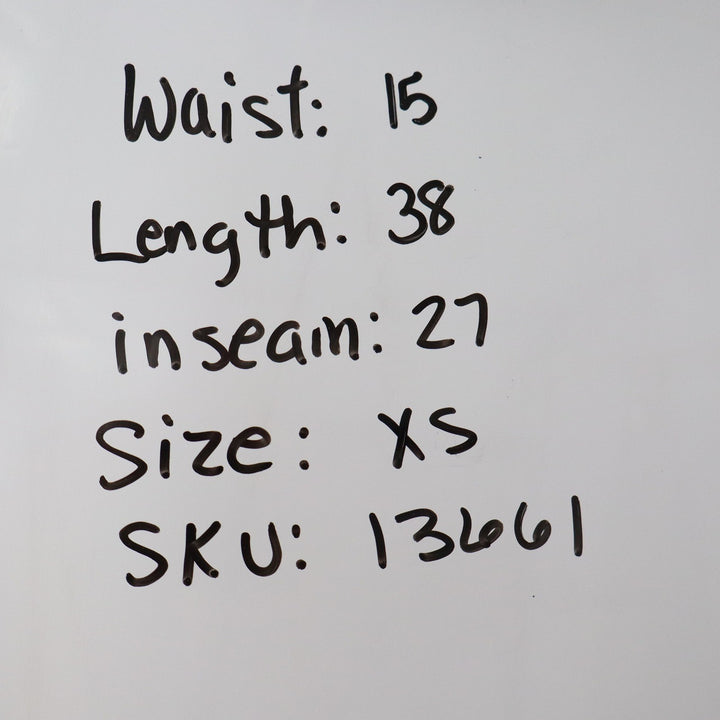 Waist: 15
Length: 38
inseam: 27
Size: XS
SKU: 13661